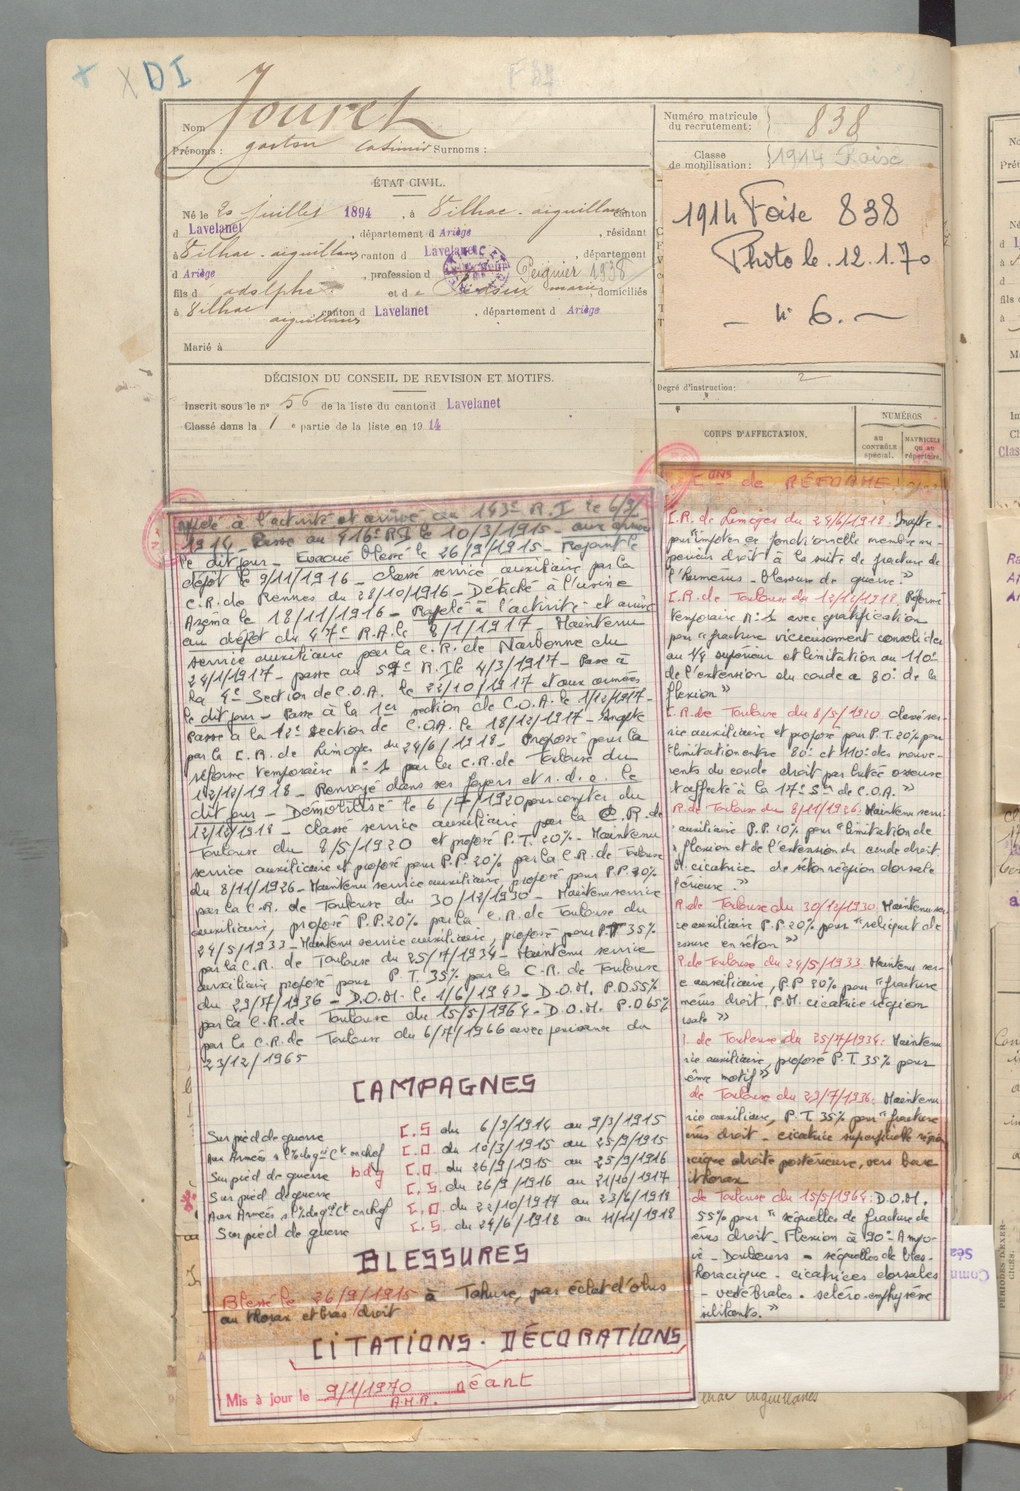 X X DI
Nom Jouret
Prénoms : gaston Casimir Surnoms :
Numéro matricule du recrutement : 838
Classe de mobilisation : 1914 Foise
1914 Foise 838
Photo le . 12.1.70
_ N° 6. _
ÉTAT CIVIL.
Né le 20 juillet 1894 , à Vilhac-aiguillanes canton
d Lavelanet , département d Ariège , résidant
à Vilhac-aiguillanes canton d Lavelanet , département
d Ariège , profession d Peignier 1938
fils d adolphe et d e marie , domiciliés
à Vilhac aiguillanes canton d Lavelanet , département d Ariège
Marié à
Degré d'instruction : 2
DÉCISION DU CONSEIL DE REVISION ET MOTIFS.
Inscrit sous le n° 56 de la liste du canton d Lavelanet
Classé dans la 1 e partie de la liste en 1914
CORPS D'AFFECTATION.
NUMÉROS
au CONTRÔLE spécial.
MATRICULE ou au répertoire.
à l'activité et arrivé au 143e R.I le 6/9/
1914 - Passé au 416e R.I le 10/3/1915 - aux armées
le dit jour - Evacué blessé le 26/9/1915 - Rejoint le
dépôt le 9/11/1916 - classé service auxiliaire par la
C.R. de Rennes du 28/10/1916 - Détaché à l'usine
Azéma le 18/11/1916 - Rappelé à l'activité et arrivé
au dépôt du 47e R.A. le 8/1/1917 - Maintenu
service auxiliaire par la C.R. de Narbonne du
24/1/1917 - passé au 59e R.I le 4/3/1917 - Passé à
la 4e Section de C.O.A. le 22/10/1917 et aux armées
le dit jour - Passé à la 1er section de C.O.A. le 1/12/1917 -
Passé à la 12e section de C.O.A. le 18/12/1917 - Inapte
par la C.R. de Limoges du 24/6/1918 - Proposé pour la
réforme temporaire n° 1 par la C.R. de Toulouse du
12/12/1918 - Renvoyé dans ses foyers et r.d.c. le
dit jour - Démobilisé le 6/7/1920 pour compter du
12/12/1918 - classé service auxiliaire par la C.R. de
Toulouse du 8/5/1920 et proposé P.T. 20% - Maintenu
service auxiliaire et proposé pour P.P. 20% par la C.R. de Toulouse
du 8/11/1926 - Maintenu service auxiliaire, proposé pour P.P. 20%
par la C.R. de Toulouse du 30/12/1930 - Maintenu service
auxiliaire, proposé P.P. 20% par la C.R. de Toulouse du
24/5/1933 - Maintenu service auxiliaire, proposé pour P.T 35%
par la C.R. de Toulouse du 25/7/1934 - Maintenu service
auxiliaire proposé pour P.T. 35% par la C.R. de Toulouse
du 29/7/1936 - D.O.M. le 1/6/1943 - D.O.M. P.D. 55%
par la C.R. de Toulouse du 15/5/1964 - D.O.M. P.D 65%
par la C.R. de Toulouse du 6/7/1966 avec jouissance du
23/12/1965
CAMPAGNES
Sur pied de guerre C.S du 6/3/1914 au 9/3/1915
Aux Armées C.D. du 10/3/1915 au 25/9/1915
Sur pied de guerre bdg C.D. du 26/9/1915 au 25/9/1916
Sur pied de guerre C.S. du 26/9/1916 au 21/10/1917
Aux Armées C.D du 22/10/1917 au 23/6/1918
Sur pied de guerre C.S. du 24/6/1918 au 11/11/1918
BLESSURES
Blessé le 26/9/1915 à Tahure, par éclat d'obus
au thorax et bras droit
CITATIONS - DÉCORATIONS
néant
Mis à jour le 9/1/1970
A.M.R.
Cons de RÉFORME:
C.R. de Limoges du 24/6/1918: Inapte
pour "impotence fonctionnelle membre su-
périeur droit à la suite de fracture de
l'humérus - blessure de guerre."
C.R. de Toulouse du 12/12/1918: Réforme
temporaire n° 1 avec gratification
pour "fracture vicieusement consolidée
au 1/4 supérieur et limitation au 110°
de l'extension du coude à 80° de la
flexion"
C.R. de Toulouse du 8/5/1920: classé ser-
vice auxiliaire et proposé pour P.T. 20% pour
"limitation entre 80° et 110° des mouve-
ments du coude droit par butée osseuse
affecté à la 17e Son de C.O.A."
R. de Toulouse du 8/11/1926: Maintenu servi
auxiliaire P.P. 20% pour "limitation de
flexion et de l'extension du coude droit.
M. cicatrice de séton région dorsale
férieure."
R. de Toulouse du 30/12/1930: Maintenu ser-
ce auxiliaire P.P. 20% pour "reliquat de
ssure en séton"
R. de Toulouse du 24/5/1933: Maintenu ser-
e auxiliaire, P.P 20% pour "fracture
mérus droit. P.M. cicatrice région
sale"
de Toulouse du 25/7/1934: Mainten
ice auxiliaire, proposé P.T. 35% pour
ême motif"
de Toulouse du 29/7/1936: Maintenu
ice auxiliaire, P.T. 35% pour "fracture
érus droit - cicatrice superficielle région
racique droite postérieure, vers base
thorax
de Toulouse du 15/5/1964: D.O.M.
55% pour "séquelles de fracture de
érus droit - Flexion à 90° - Amyo-
ie - Douleurs - séquelles de bles-
horacique - cicatrices dorsales
- vertébrales - scléro-emphysème